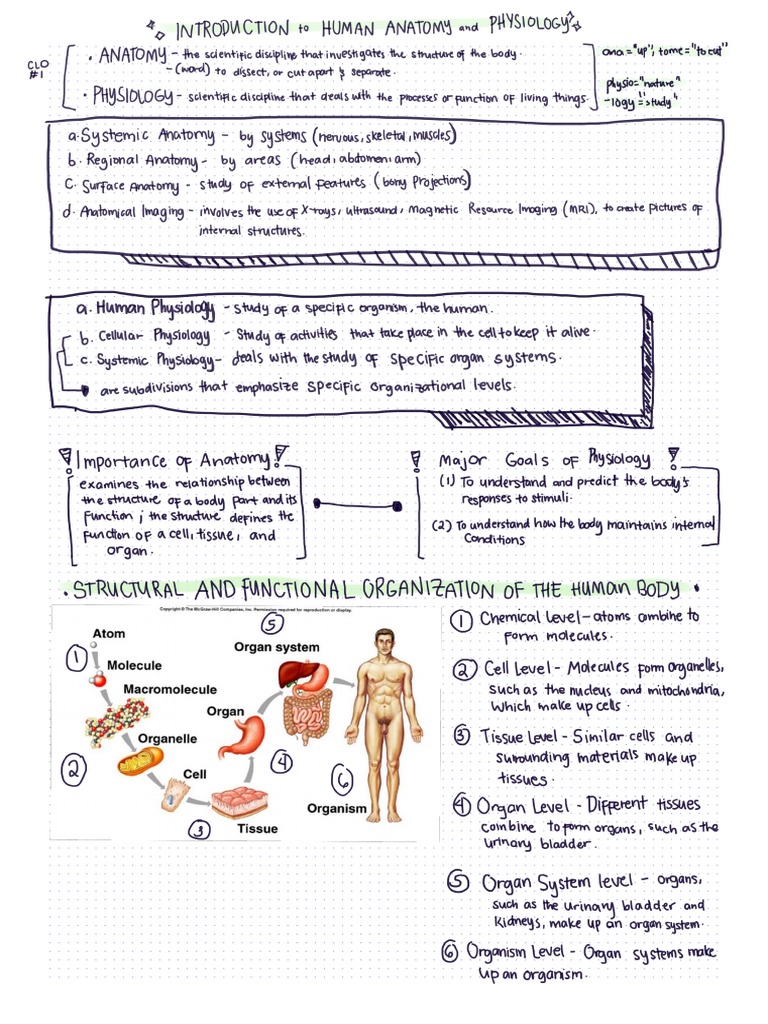 INTRODUCTION to HUMAN ANATOMY and PHYSIOLOGY
CLO #1
• ANATOMY – the scientific discipline that investigates the structure of the body.
– (word) to dissect, or cut apart & separate.
• PHYSIOLOGY – scientific discipline that deals with the processes or function of living things.
ana = "up"; tome = "to cut"
physio = "nature"
-logy = "study"
a. Systemic Anatomy – by systems (nervous, skeletal, muscles)
b. Regional Anatomy – by areas (head, abdomen, arm)
C. Surface Anatomy – study of external features (bony Projections)
d. Anatomical Imaging – involves the use of X-rays, ultrasound, Magnetic Resource Imaging (MRI), to create pictures of
internal structures.
a. Human Physiology – study of a specific organism, the human.
b. Cellular Physiology – Study of activities that take place in the cell to keep it alive.
c. Systemic Physiology – deals with the study of specific organ systems.
are subdivisions that emphasize specific organizational levels.
! Importance of Anatomy !
examines the relationship between
the structure of a body part and its
function; the structure defines the
function of a cell, tissue, and
organ.
! Major Goals of Physiology !
(1) To understand and predict the body's
responses to stimuli.
(2) To understand how the body maintains internal
conditions
• STRUCTURAL AND FUNCTIONAL ORGANIZATION OF THE HUMAN BODY •
Copyright © The McGraw-Hill Companies, Inc. Permission required for reproduction or display.
Atom
1
Molecule
Macromolecule
Organelle
2
Cell
3
Tissue
4
Organ
5
Organ system
6
Organism
1 Chemical Level – atoms ombine to
form molecules.
2 Cell Level – Molecules form organelles,
such as the nucleus and mitochondria,
which make up cells.
3 Tissue Level – Similar cells and
surrounding materials make up
tissues.
4 Organ Level – Different tissues
combine to form organs, such as the
urinary bladder.
5 Organ System level – organs,
such as the urinary bladder and
kidneys, make up an organ system.
6 Organism Level – Organ systems make
up an organism.